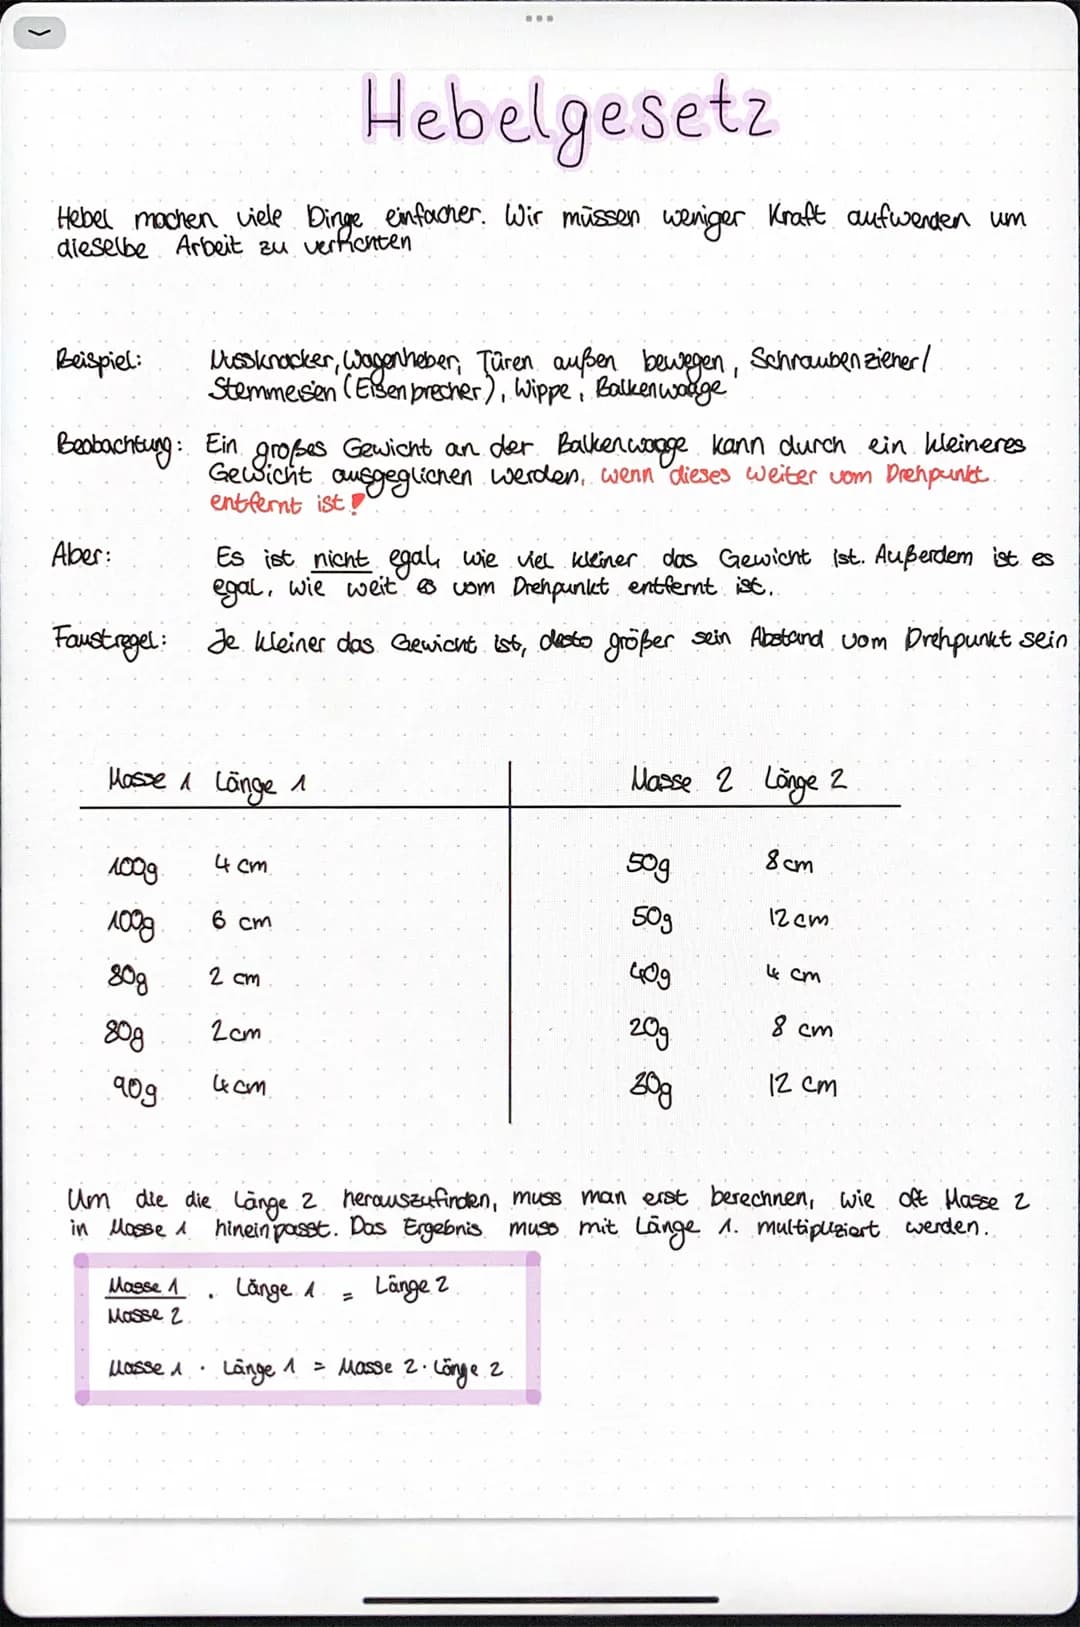 Hebelgesetz
Hebel machen viele Dinge einfacher. Wir müssen weniger Kraft aufwenden um
dieselbe Arbeit zu verrichten
Beispiel: Nussknacker, Wagenheber, Türen außen bewegen, Schraubenziener/
Stemmeisen (Eisenprecher), Wippe, Balkenwaage
Beobachtung: Ein großes Gewicht an der Balkenwaage kann durch ein kleineres
Gewicht ausgeglichen werden, wenn dieses weiter vom Drehpunkt
entfernt ist!
Aber: Es ist nicht egal, wie viel kleiner das Gewicht ist. Außerdem ist es
egal, wie weit es vom Drehpunkt entfernt ist.
Faustregel: Je kleiner das Gewicht ist, desto größer sein Abstand vom Drehpunkt sein
Masse 1 Länge 1 Masse 2 Länge 2
100g 4 cm 50g 8 cm
100g 6 cm 50g 12 cm
80g 2 cm 40g 4 cm
80g 2cm 20g 8 cm
90g 4cm 30g 12 cm
Um die die Länge 2 herauszufinden, muss man erst berechnen, wie oft Masse 2
in Masse 1 hineinpasst. Das Ergebnis muss mit Länge 1. multipliziert werden.
Masse 1 · Länge 1 = Länge 2
Masse 2
Masse 1 · Länge 1 = Masse 2 · Länge 2